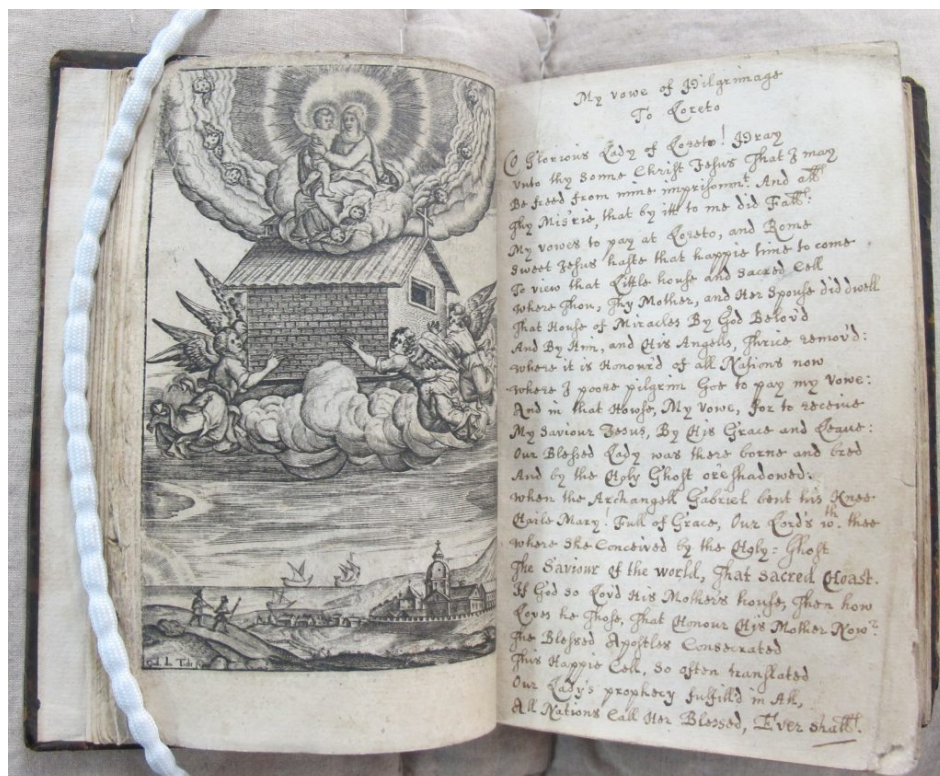 My vowe of Pilgrimage
To Loreto
O Glorious Lady of Loreto! Pray
vnto thy Sonne Christ Jesus That I may
Be freed from mine imprisonmt: And all
Thy Mis'rie, that by itt to me did Fall:
My vowes to pay at Loreto, and Rome
Sweet Jesus haste that happie time to come
To view that Little house and Sacred Cell
Where Thou, Thy Mother, and Her Spouse did dwell
That House of Miracles By God Belov'd
And By Him, and His Angells, Thrice remov'd:
Where it is Honour'd of all Nations now
Where I poore pilgrim Goe to pay my Vowe:
And in that Howse, My Vowe, for to receive
My Saviour Jesus, By His Grace and Leave:
Our Blessed Lady was there borne and bred
And by the Holy Ghost oreshadowed:
When the Archangell Gabriel bent his Knee
Haile Mary! Full of Grace, Our Lord's wth thee
Where She Conceived by the Holy-Ghost
The Saviour of the world, That Sacred Hoast.
If God so Lov'd His Mother's house, Then how
Loves he Those, That Honour His Mother Now?
The Blessed Apostles Consecrated
This Happie Cell, So often translated
Our Lady's prophecy fulfill'd in All,
All Nations Call Her Blessed, Ever shall.